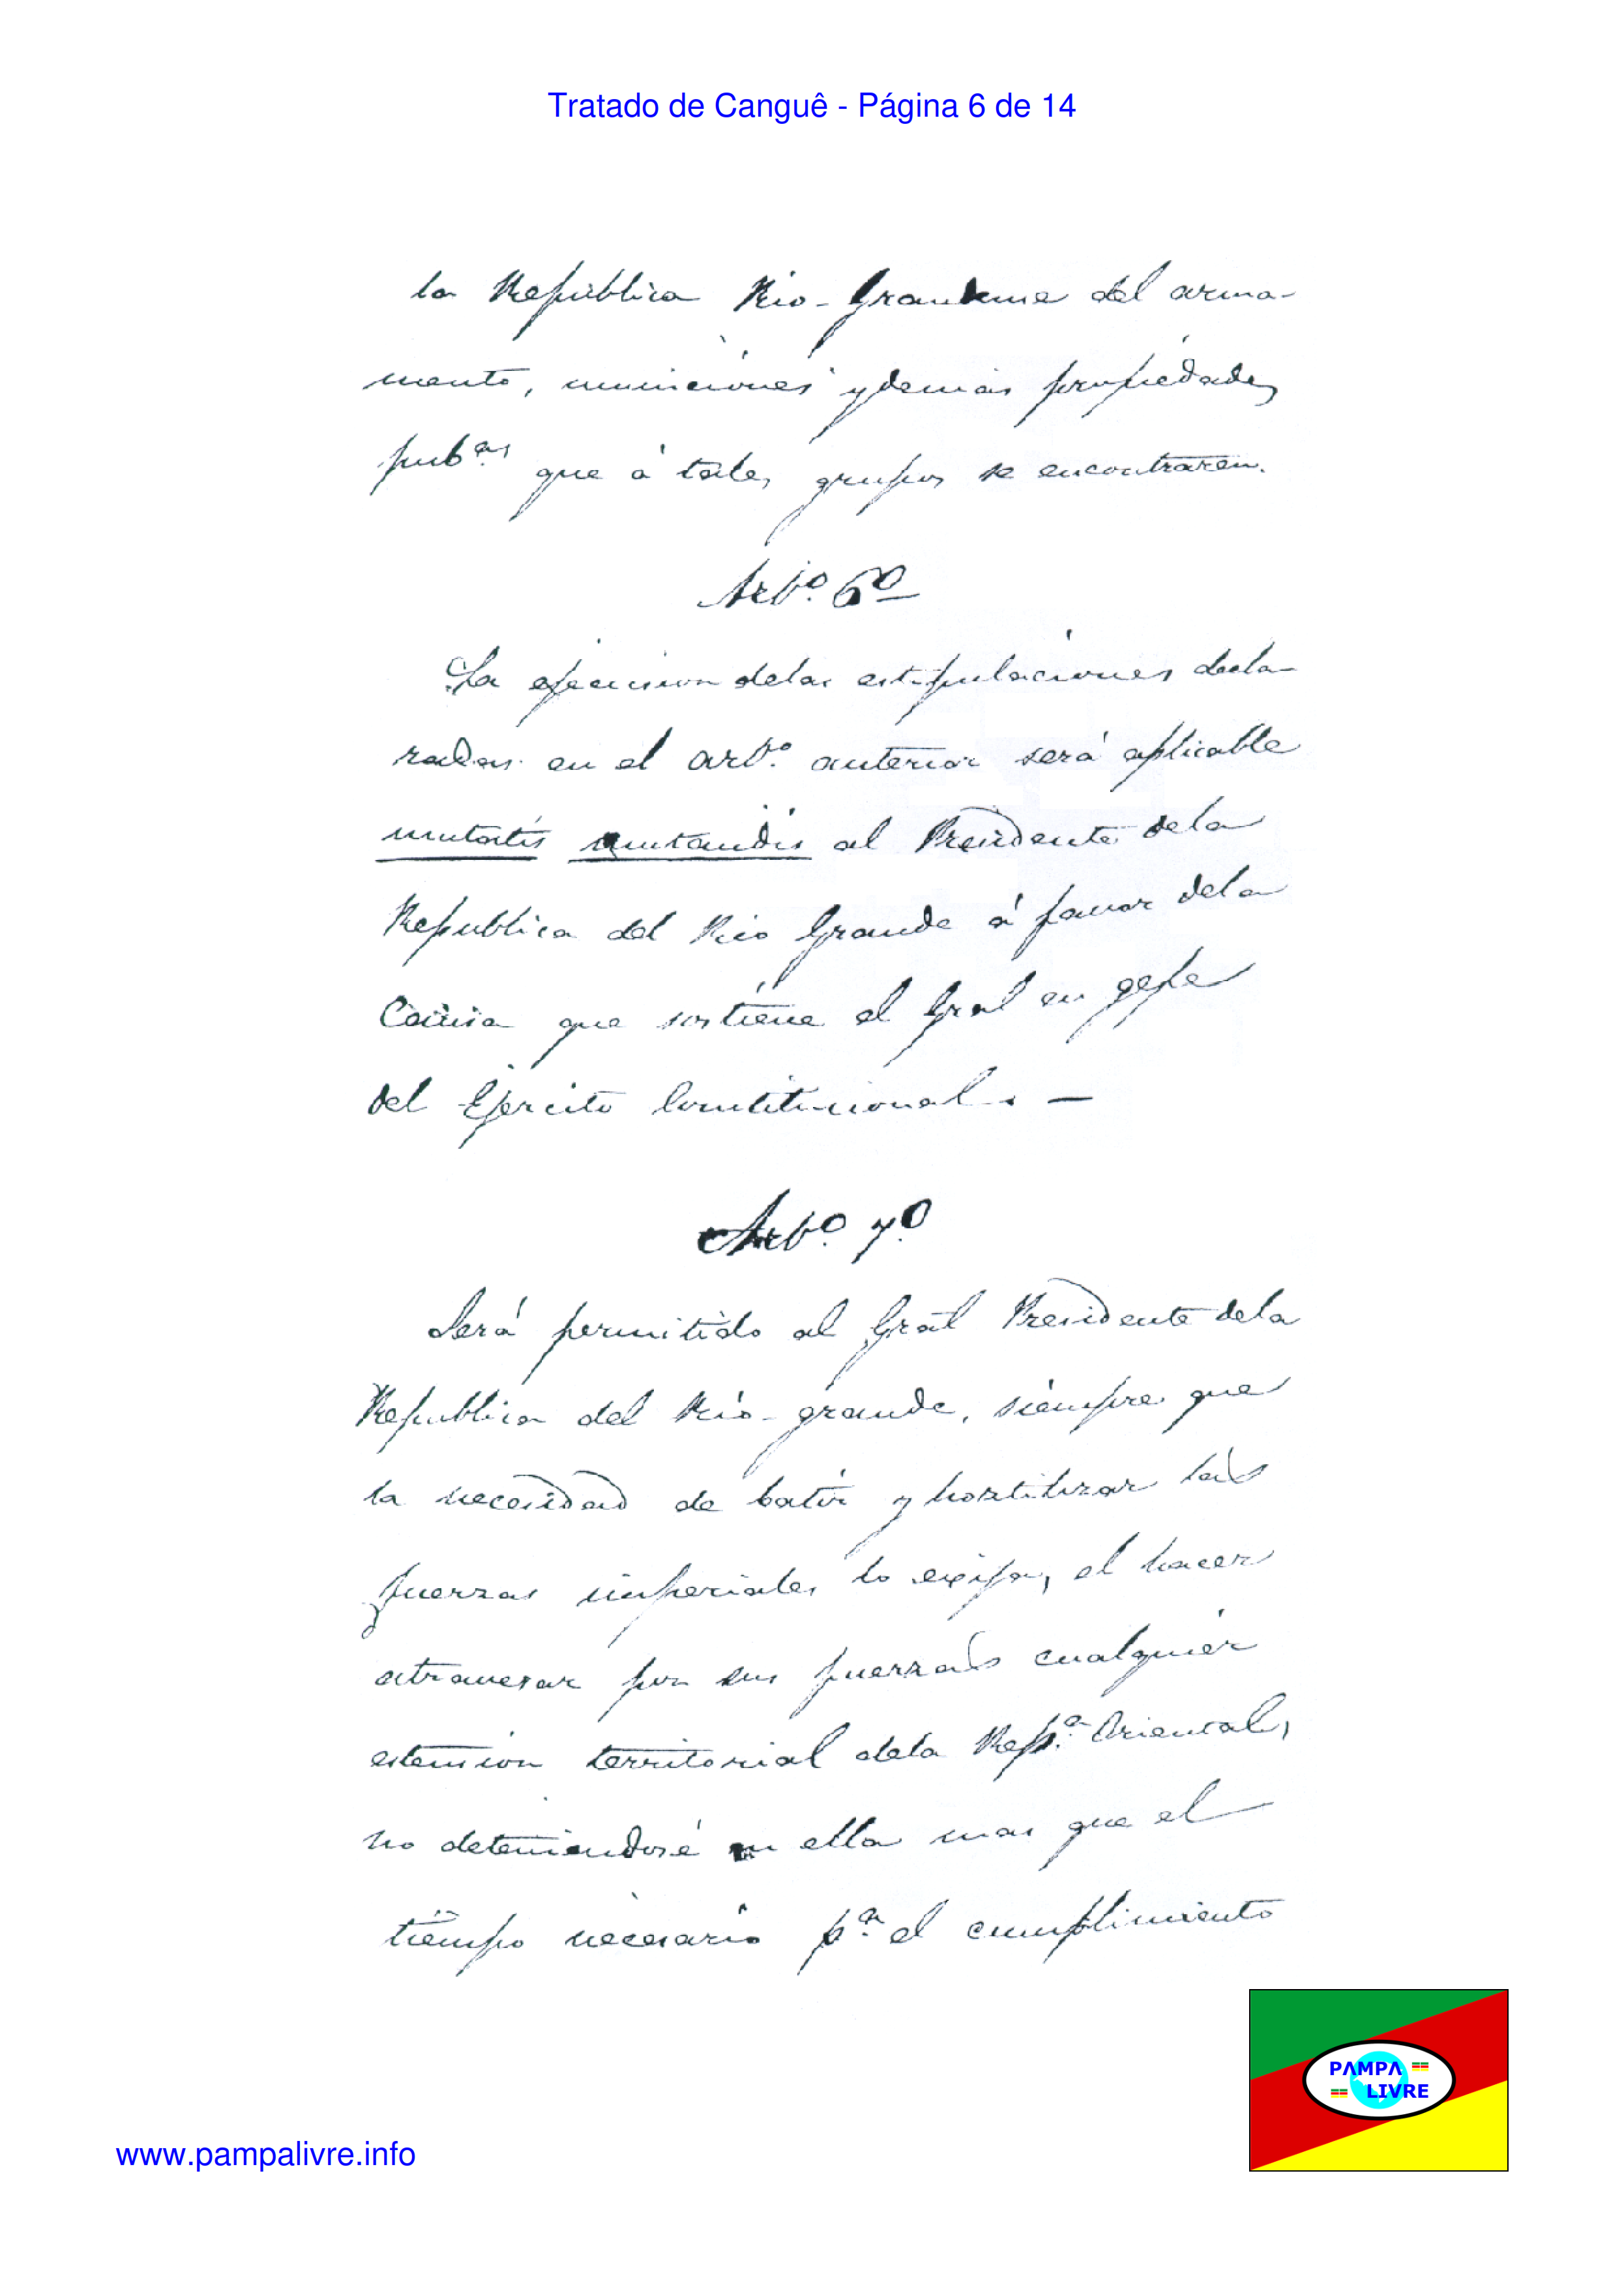 Tratado de Canguê - Página 6 de 14
la República Rio-Grandense del arma-
mento, municiones y demas propiedades
pub.as que á tales grupos se encontraren.
Art.o 6o
La ejecucion delas estipulaciones decla-
radas en el art.o anterior será aplicable
mutatis mutandis al Presidente dela
Republica del Rio Grande á favor dela
Causa que sostiene el Gral en gefe
del Ejercito Constitucional. —
Art.o 7.o
Será permitido al Gral Presidente dela
Republica del Rio-grande, siempre que
la necesidad de batir y hostilizar las
fuerzas imperiales lo exija, el hacer
atravesar por sus fuerzas cualquier
estension territorial dela Rep.a Oriental,
no deteniendose en ella mas que el
tiempo necesario p.a el cumplimiento
PAMPA
LIVRE
www.pampalivre.info